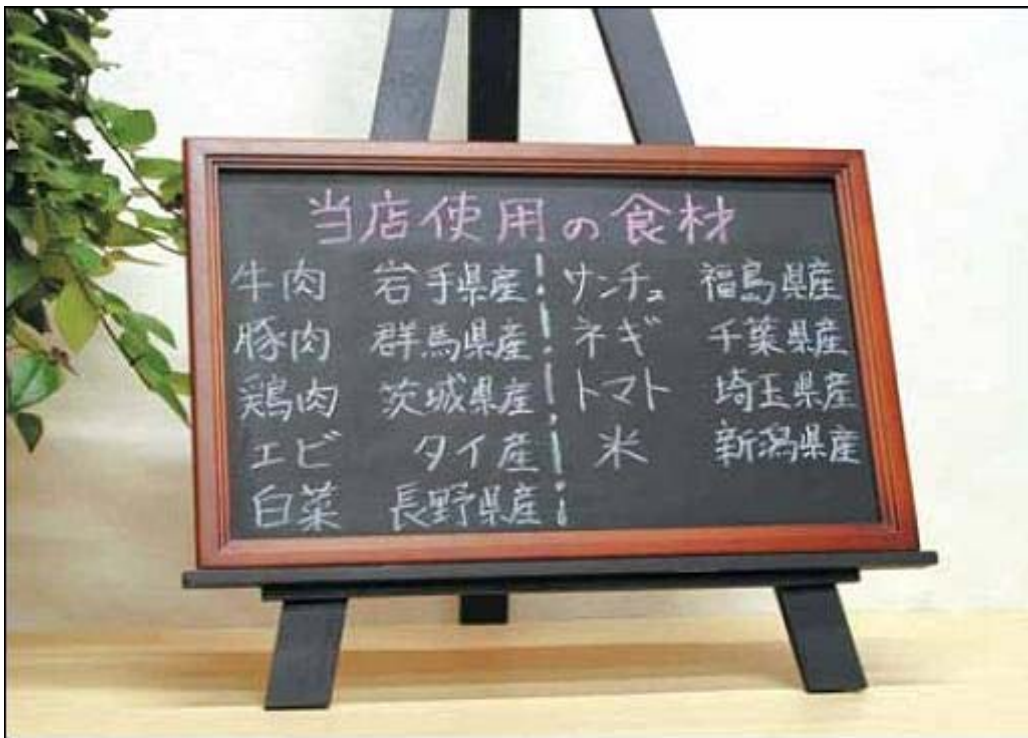 当店使用の食材
牛肉 岩手県産
豚肉 群馬県産
鶏肉 茨城県産
エビ タイ産
白菜 長野県産
サンチュ 福島県産
ネギ 千葉県産
トマト 埼玉県産
米 新潟県産